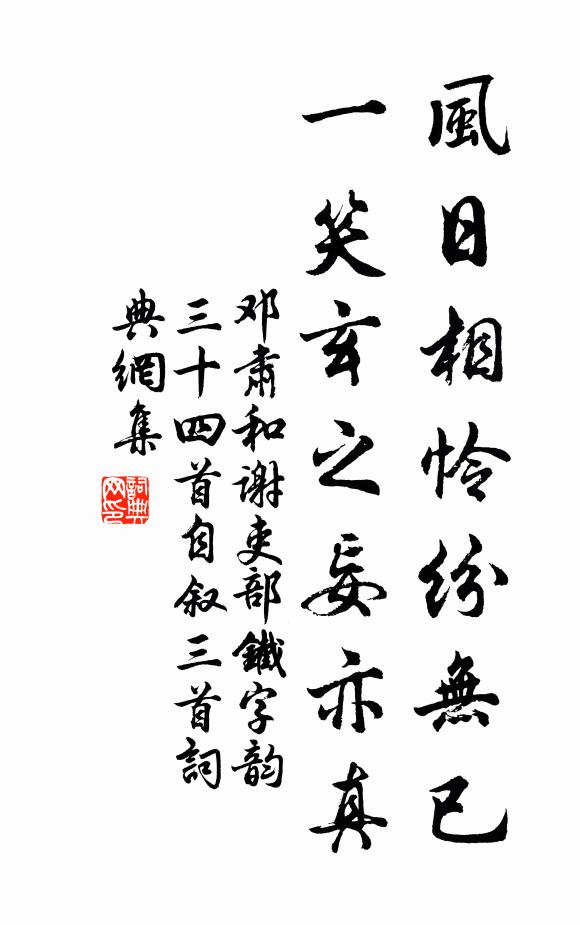 風日相怜紛無已
一笑玄之妄亦真
邓肅和谢吏部鐵字韵
三十四首自叙三首詞
典網集
詞典网印